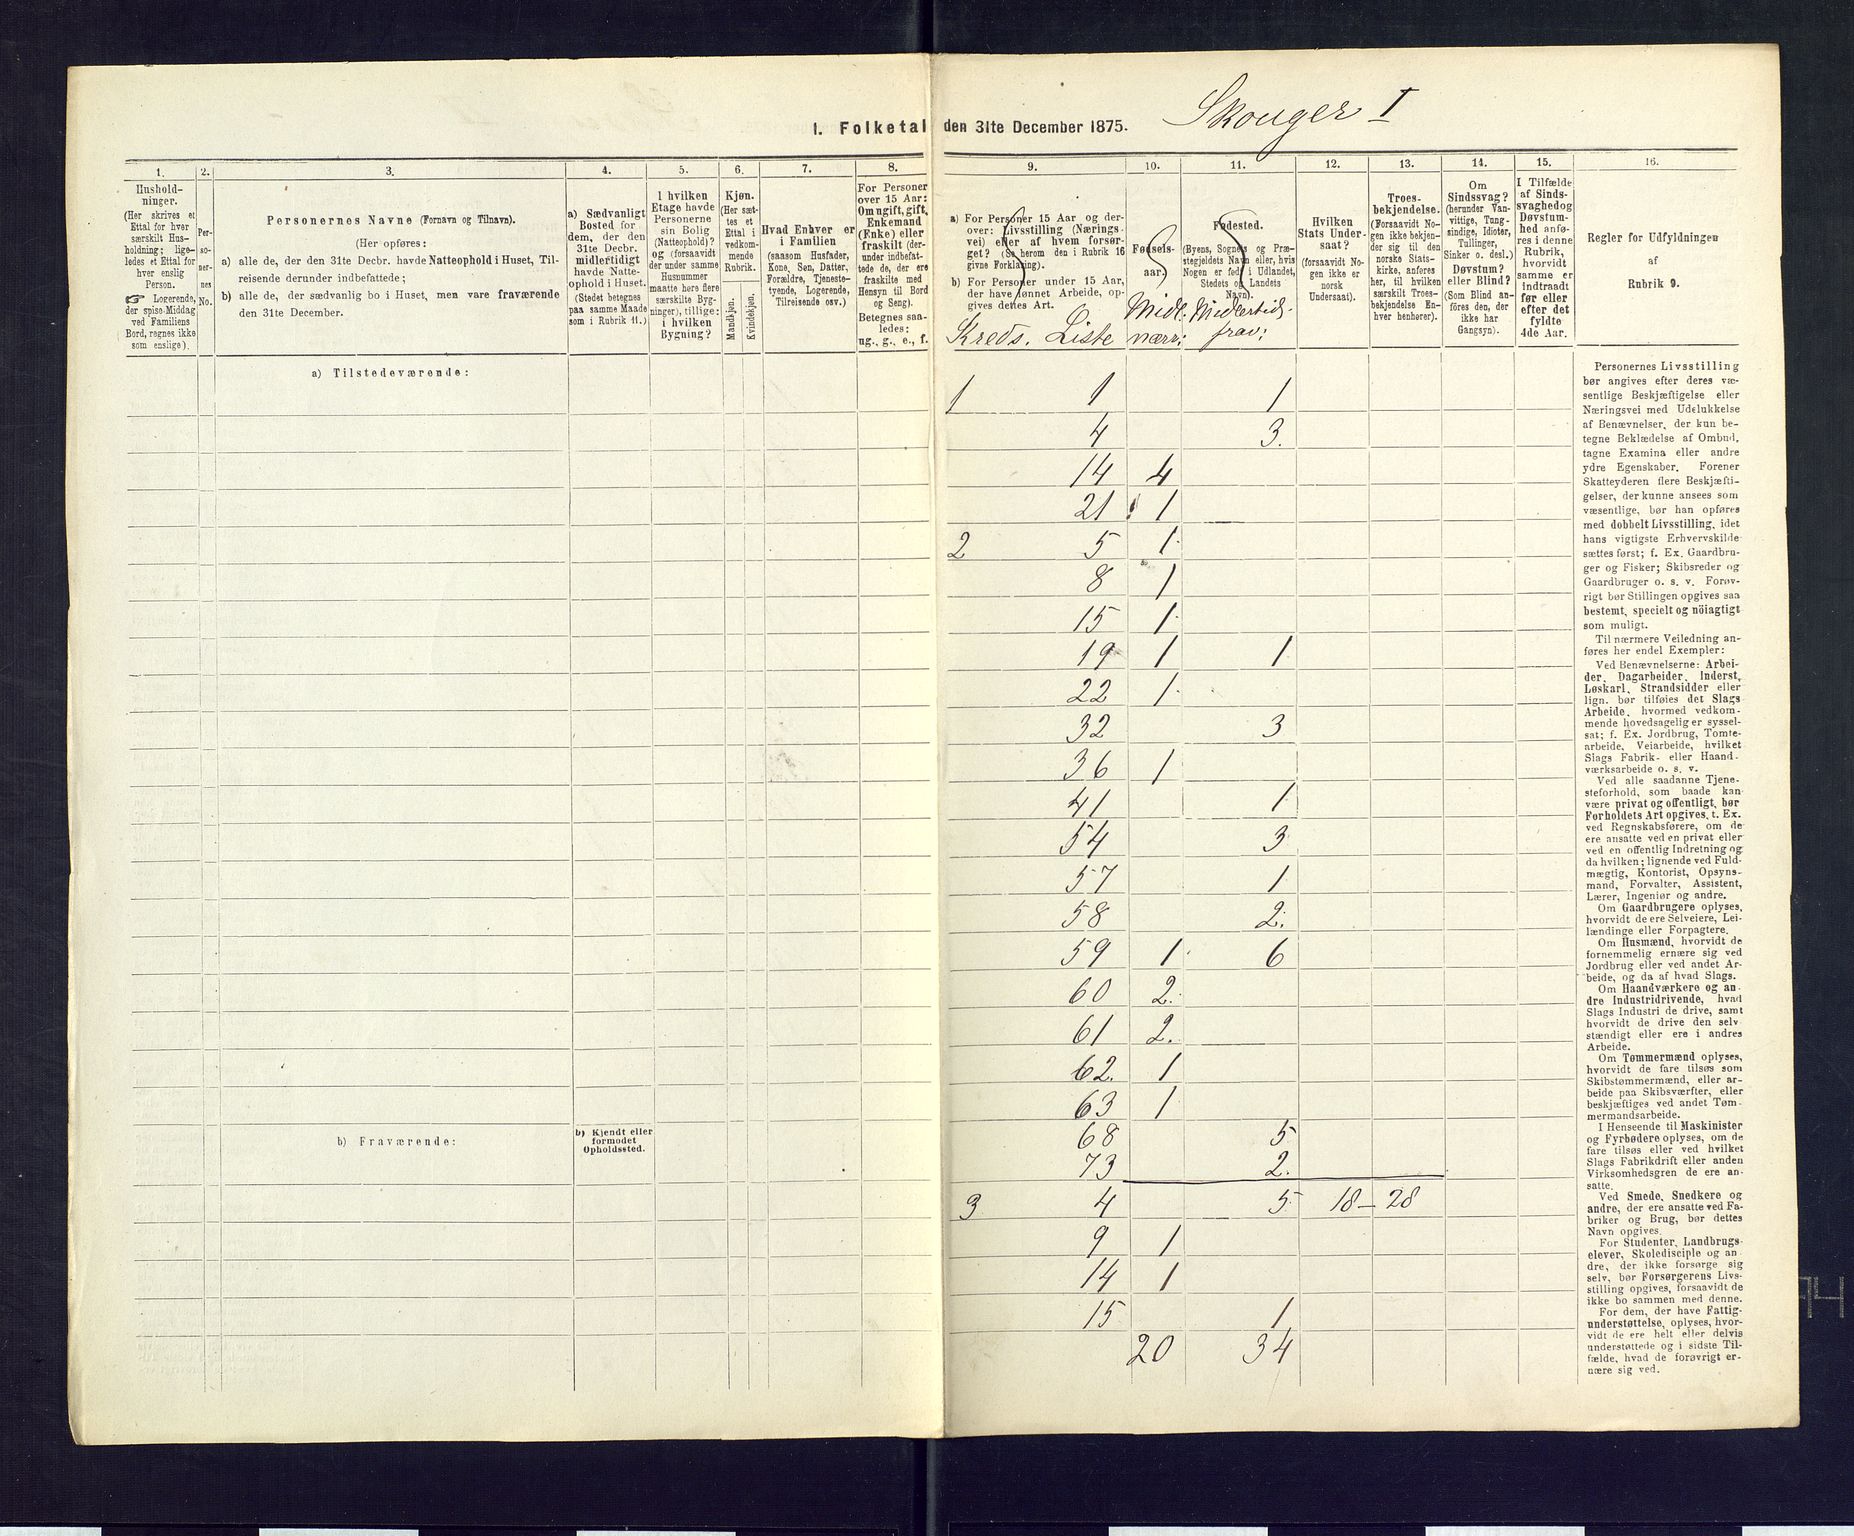 Skouger I
1. Folketal den 31te December 1875.
1. 2. 3. 4. 5. 6. 7. 8. 9. 10. 11. 12. 13. 14. 15. 16.
Hushold-
ninger.
(Her skrives et
Ettal for hver
særskilt Hus-
holdning; lige-
ledes et Ettal for
hver enslig
Person.
☞ Logerende,
der spise Middag
ved Familiens
Bord, regnes ikke
som enslige).
Per-
so-
ner-
nes
No.
Personernes Navne (Fornavn og Tilnavn).
(Her opføres:
a) alle de, der den 31te Decbr. havde Natteophold i Huset, Til-
reisende derunder indbefattede;
b) alle de, der sædvanlig bo i Huset, men vare fraværende
den 31te December.
a) Sædvanligt
Bosted for
dem, der den
31te Decbr.
midlertidigt
havde Natte-
ophold i Huset.
(Stedet betegnes
paa samme Maade
som i Rubrik 11.)
I hvilken
Etage havde
Personerne
sin Bolig
(Natteophold)?
og (forsaavidt
der under samme
Husnummer
maatte høre flere
særskilte Byg-
ninger), tillige:
i hvilken
Bygning?
Kjøn.
(Her sæt-
tes et
Ettal i
vedkom-
mende
Rubrik.
Mandkjøn.
Kvindekjøn.
Hvad Enhver er
i Familien
(saasom Husfader,
Kone, Søn, Datter,
Forældre, Tjeneste-
tyende, Logerende,
Tilreisende osv.)
For Personer
over 15 Aar:
Om ugift, gift,
Enkemand
(Enke) eller
fraskilt (der-
under indbefat-
tede de, der ere
fraskilte med
Hensyn til Bord
og Seng).
Betegnes saa-
ledes:
ug., g., e., f.
a) For Personer 15 Aar og der-
over: Livsstilling (Nærings-
vei) eller af hvem forsør-
get? (Se herom den i Rubrik 16
givne Forklaring).
b) For Personer under 15 Aar,
der have lønnet Arbeide, op-
gives dettes Art.
Kreds. Liste
Fødsels-
aar.
Midl.
nærv:
Fødested.
(Byens, Sognets og Præ-
stegjeldets Navn eller, hvis
Nogen er født i Udlandet,
Stedets og Landets
Navn).
Midlertid.
frav:
Hvilken
Stats Under-
saat?
(forsaavidt No-
gen ikke er
norsk
Undersaat).
Troes-
bekjendelse.
(Forsaavidt No-
gen ikke bekjen-
der sig til den
norske Stats-
kirke, anføres
her, til hvilken
særskilt Troes-
bekjendelse En-
hver henhører).
Om
Sindssvag?
(herunder Van-
vittige, Tung-
sindige, Idioter,
Tullinger,
Sinker o. desl.).
Døvstum?
eller Blind?
(Som Blind an-
føres den, der
ikke har
Gangsyn).
I Tilfælde
af Sinds-
svaghed og
Døvstum-
hed anfø-
res i denne
Rubrik,
hvorvidt
samme er
indtraadt
før eller
efter det
fyldte
4de Aar.
Regler for Udfyldningen
af
Rubrik 9.
a) Tilstedeværende:
1 1 1
4 3.
14 4
21 1
2 5 1
8 1
15 1
19 1 1
22 1
32 3
36 1
41 1
54 3
57 1
58 2.
59 1 6
60 2.
61 2.
62. 1
63 1
b) Fraværende:
b) Kjendt eller
formodet
Opholdssted.
68 5
73 2.
3 4 5 18 – 28
9 1
14 1
15 1
20 34
Personernes Livsstilling
bør angives efter deres væ-
sentlige Beskjæftigelse eller
Næringsvei med Udelukkelse
af Benævnelser, der kun be-
tegne Beklædelse af Ombud,
tagne Examina eller andre
ydre Egenskaber. Forener
Skatteyderen flere Beskjæfti-
gelser, der kunne ansees som
væsentlige, bør han opføres
med dobbelt Livsstilling, idet
hans vigtigste Erhvervskilde
sættes først; f. Ex. Gaardbru-
ger og Fisker; Skibsreder og
Gaardbruger o. s. v. Forøv-
rigt bør Stillingen opgives saa
bestemt, specielt og nöiagtigt
som muligt.
Til nærmere Veiledning an-
føres her endel Exempler:
Ved Benævnelserne: Arbei-
der, Dagarbeider, Inderst,
Løskarl, Strandsidder eller
lign. bør tilføies det Slags
Arbeide, hvormed vedkom-
mende hovedsagelig er syssel-
sat; f. Ex. Jordbrug, Tomte-
arbeide, Veiarbeide, hvilket
Slags Fabrik- eller Haand-
værksarbeide o. s. v.
Ved alle saadanne Tjene-
steforhold, som baade kan
være privat og offentligt, bør
Forholdets Art opgives, t. Ex.
ved Regnskabsførere, om de
ere ansatte ved en privat eller
ved en offentlig Indretning og
da hvilken; lignende ved Fuld-
mægtig, Kontorist, Opsyns-
mand, Forvalter, Assistent,
Lærer, Ingeniør og andre.
Om Gaardbrugere oplyses,
hvorvidt de ere Selveiere, Lei-
lændinge eller Forpagtere.
Om Husmænd, hvorvidt de
fornemmelig ernære sig ved
Jordbrug eller ved andet Ar-
beide, og da af hvad Slags.
Om Haandværkere og an-
dre Industridrivende, hvad
Slags Industri de drive, samt
hvorvidt de drive den selv
stændigt eller ere i andres
Arbeide.
Om Tømmermænd oplyses,
hvorvidt de fare tilsøs som
Skibstømmermænd, eller ar-
beide paa Skibsværfter, eller
beskjæftiges ved andet Tøm-
mermandsarbeide.
I Henseende til Maskinister
og Fyrbødere oplyses, om de
fare tilsøs eller ved hvilket
Slags Fabrikdrift eller anden
Virksomhedsgren de ere an-
satte.
Ved Smede, Snedkere og
andre, der ere ansatte ved Fa-
briker og Brug, bør dettes
Navn opgives.
For Studenter, Landbrugs-
elever, Skoledisciple og an
dre, der ikke forsørge sig
selv, bør Forsørgerens Livs-
stilling opgives, forsaavidt de
ikke bo sammen med denne.
For dem, der have Fattig-
understøttelse, oplyses, hvor-
vidt de ere helt eller delvis
understøttede og i sidste Til-
fælde, hvad de forøvrigt er-
nære sig ved.